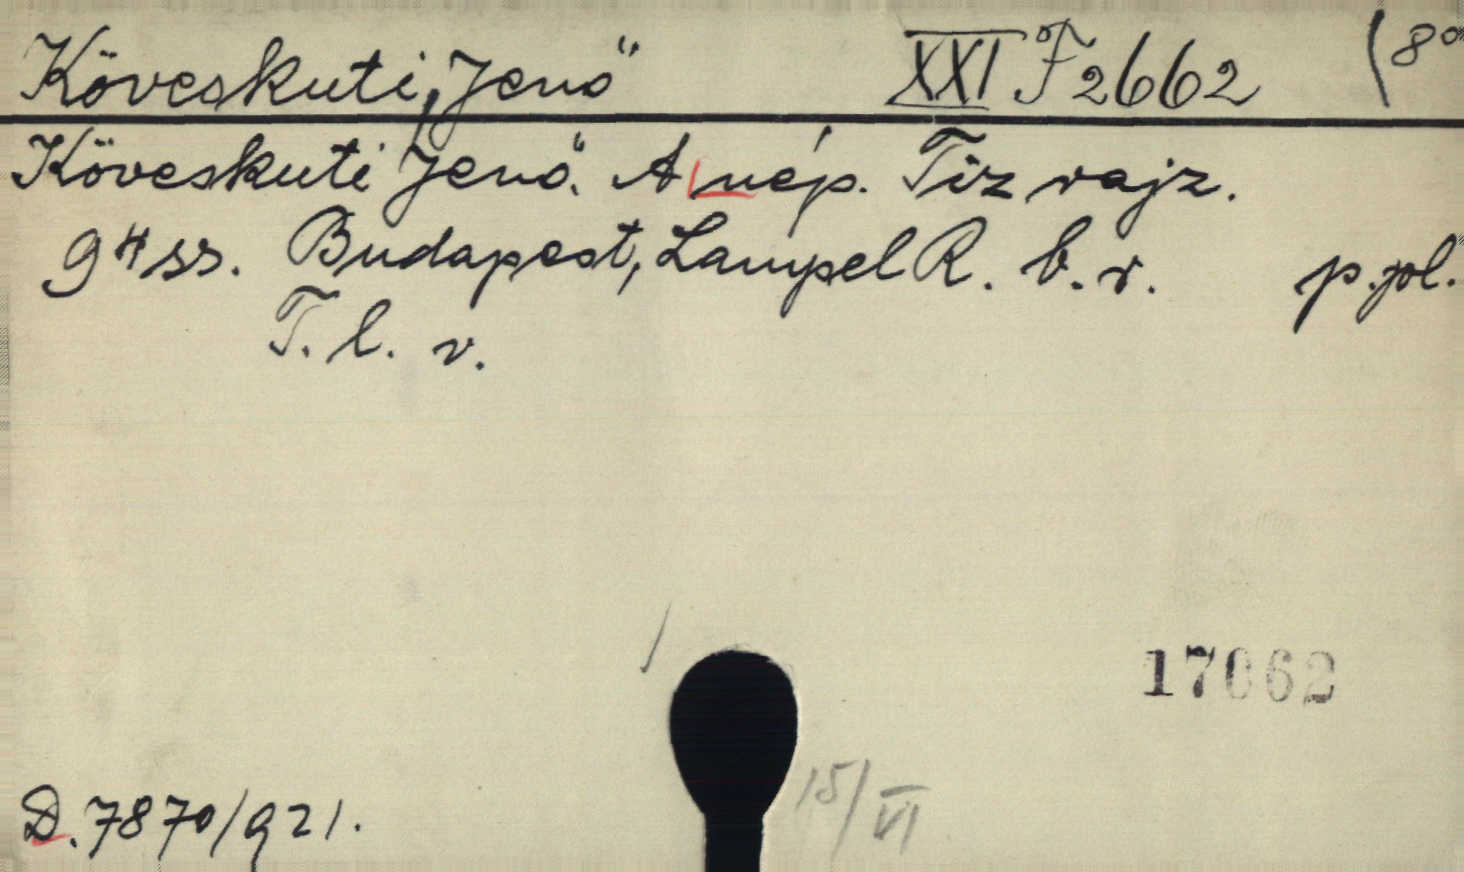 Köveskuti, Jenő XXI F 2662 (8°
Köveskuti Jenő. A nép. Tiz rajz.
Budapest, Lampel R. b. r. p. pl.
T. l. v.
17062
15/VI
D. 7870/921.